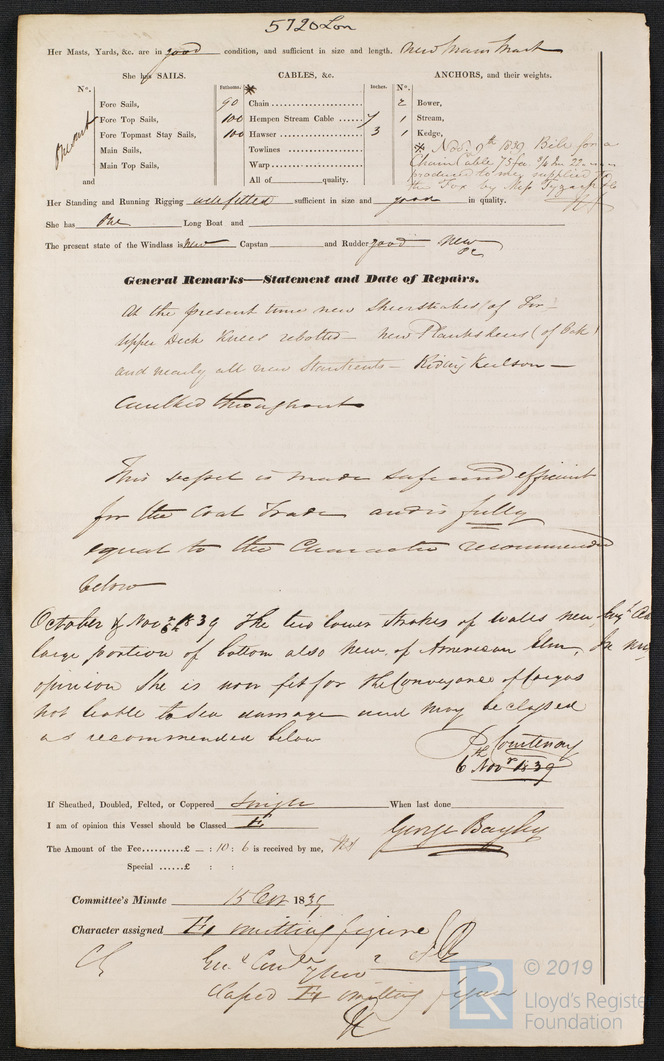 5720 Lon
Her Masts, Yards, &c. are in good condition, and sufficient in size and length. New Main Mast
She has SAILS.
CABLES, &c.
ANCHORS, and their weights.
No.
Fathoms.
Inches.
No.
Fore Sails,
90 Chain
2 Bower,
Fore Top Sails,
100 Hempen Stream Cable 7
1 Stream,
Fore Topmast Stay Sails,
100 Hawser 3
1 Kedge,
Main Sails,
Towlines
Main Top Sails,
Warp
and
All of quality.
Nov. 9th 1839 Bill for a
Chain Cable 75 fa
produced to me, supplied to
the Fox by Mess
Her Standing and Running Rigging well fitted sufficient in size and good in quality.
She has One Long Boat and
The present state of the Windlass is New Capstan and Rudder good New
General Remarks—Statement and Date of Repairs.
At the present time new Sheerstrakes (of Fir
Upper Deck Knees rebolted – new Planksheers (of Oak)
and nearly all new Stanchions – Riding Keelson –
Caulked throughout
This vessel is made safe and efficient
for the Coal Trade and is fully
equal to the Character recommended
below
October & Nov 1839 The two lower strakes of wales new
large portion of bottom also new, of American Elm, In my
opinion She is now fit for the Conveyance of Cargos
not liable to Sea damage and may be classed
as recommended below
Courtenay
6th Novr 1839
If Sheathed, Doubled, Felted, or Coppered Single When last done
I am of opinion this Vessel should be Classed E
George Bayley
The Amount of the Fee..........£ – : 10 : 6 is received by me,
Special ......£ : :
Committee's Minute 15 1839
Character assigned E1 omitting figure
Classed E1 omitting figure
LR
© 2019
Lloyd's Register
Foundation